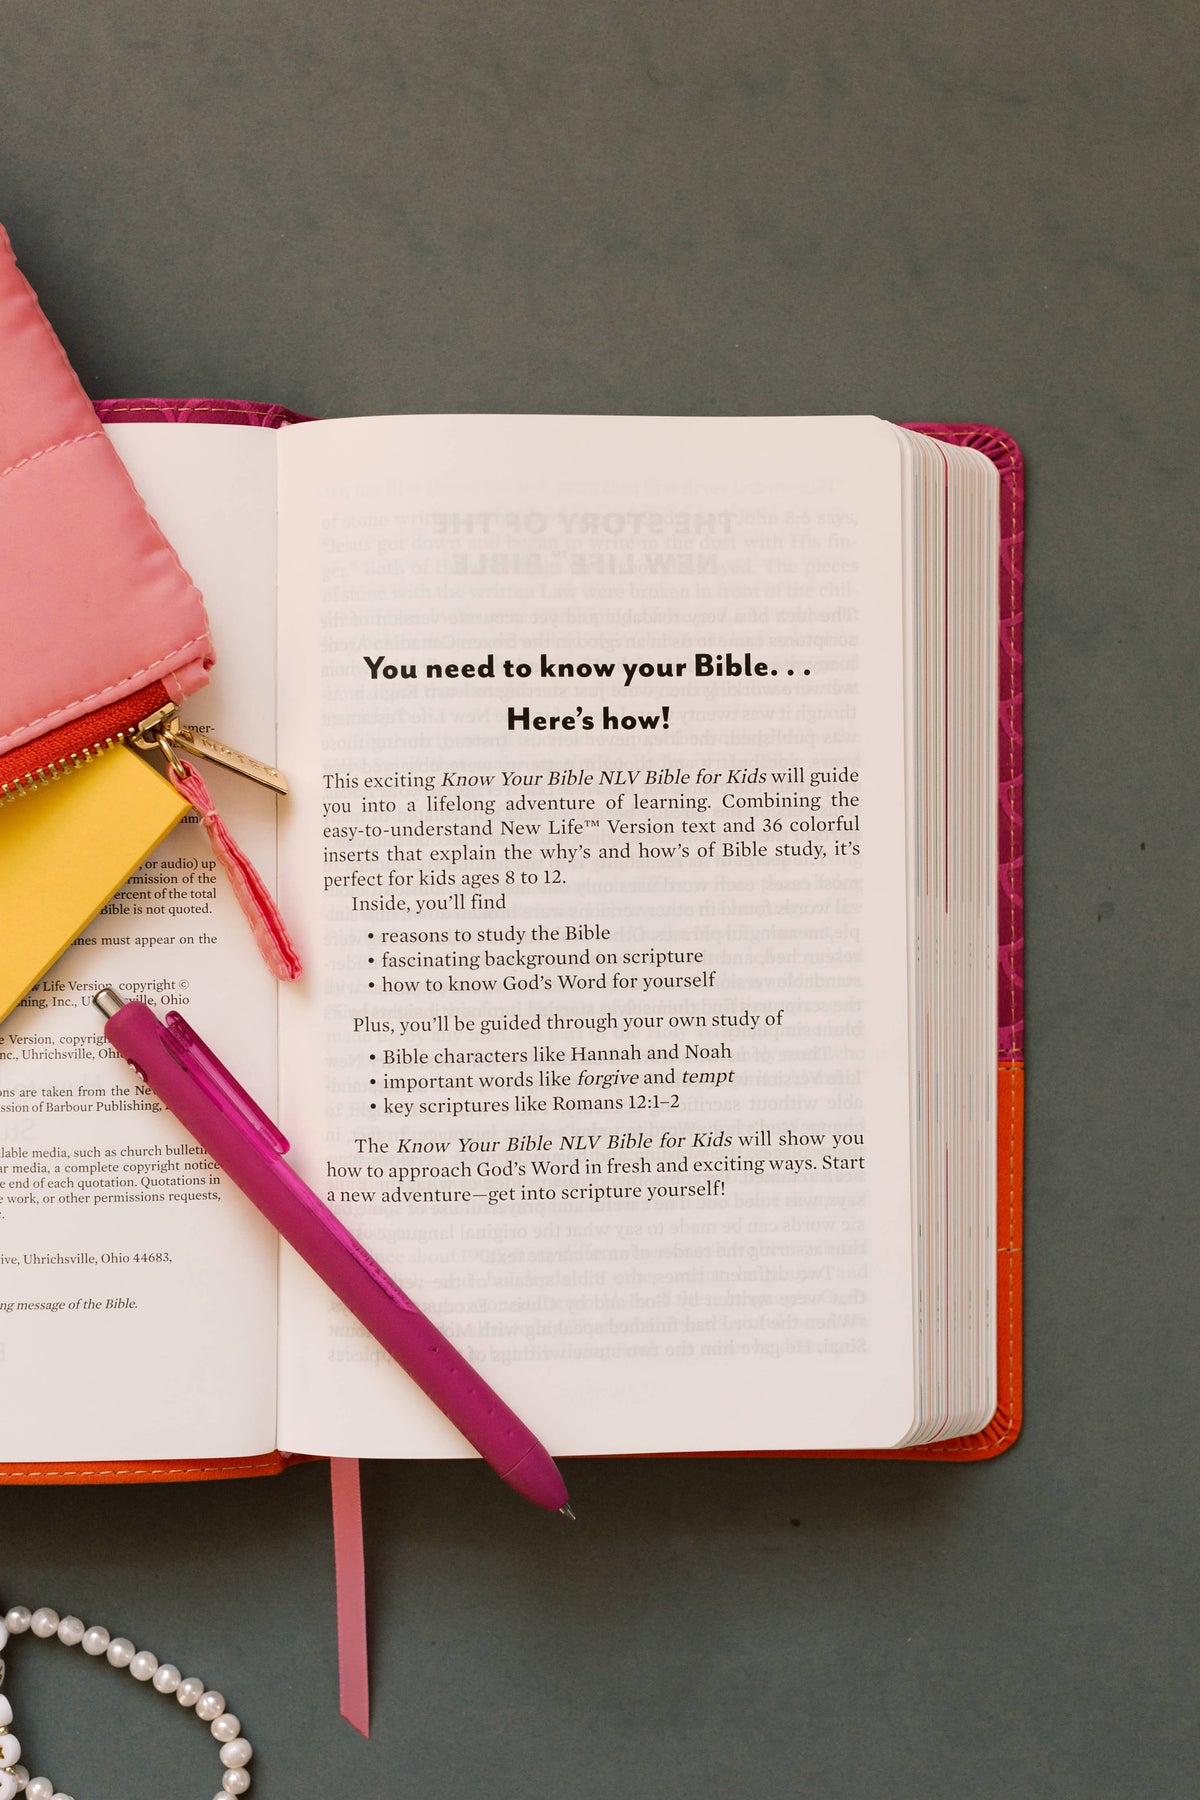 mer-
, or audio) up
rmission of the
ercent of the total
Bible is not quoted.
nes must appear on the
w Life Version, copyright ©
hing, Inc., Uhrichsville, Ohio
e Version, copyrig
nc., Uhrichsville, Ohio
ons are taken from the New
ssion of Barbour Publishing,
lable media, such as church bulletin
ar media, a complete copyright notice
e end of each quotation. Quotations in
e work, or other permissions requests,
c.
rive, Uhrichsville, Ohio 44683,
ng message of the Bible.
NOTED
You need to know your Bible. . .
Here's how!
This exciting Know Your Bible NLV Bible for Kids will guide
you into a lifelong adventure of learning. Combining the
easy-to-understand New Life™ Version text and 36 colorful
inserts that explain the why's and how's of Bible study, it's
perfect for kids ages 8 to 12.
Inside, you'll find
• reasons to study the Bible
• fascinating background on scripture
• how to know God's Word for yourself
Plus, you'll be guided through your own study of
• Bible characters like Hannah and Noah
• important words like forgive and tempt
• key scriptures like Romans 12:1–2
The Know Your Bible NLV Bible for Kids will show you
how to approach God's Word in fresh and exciting ways. Start
a new adventure—get into scripture yourself!